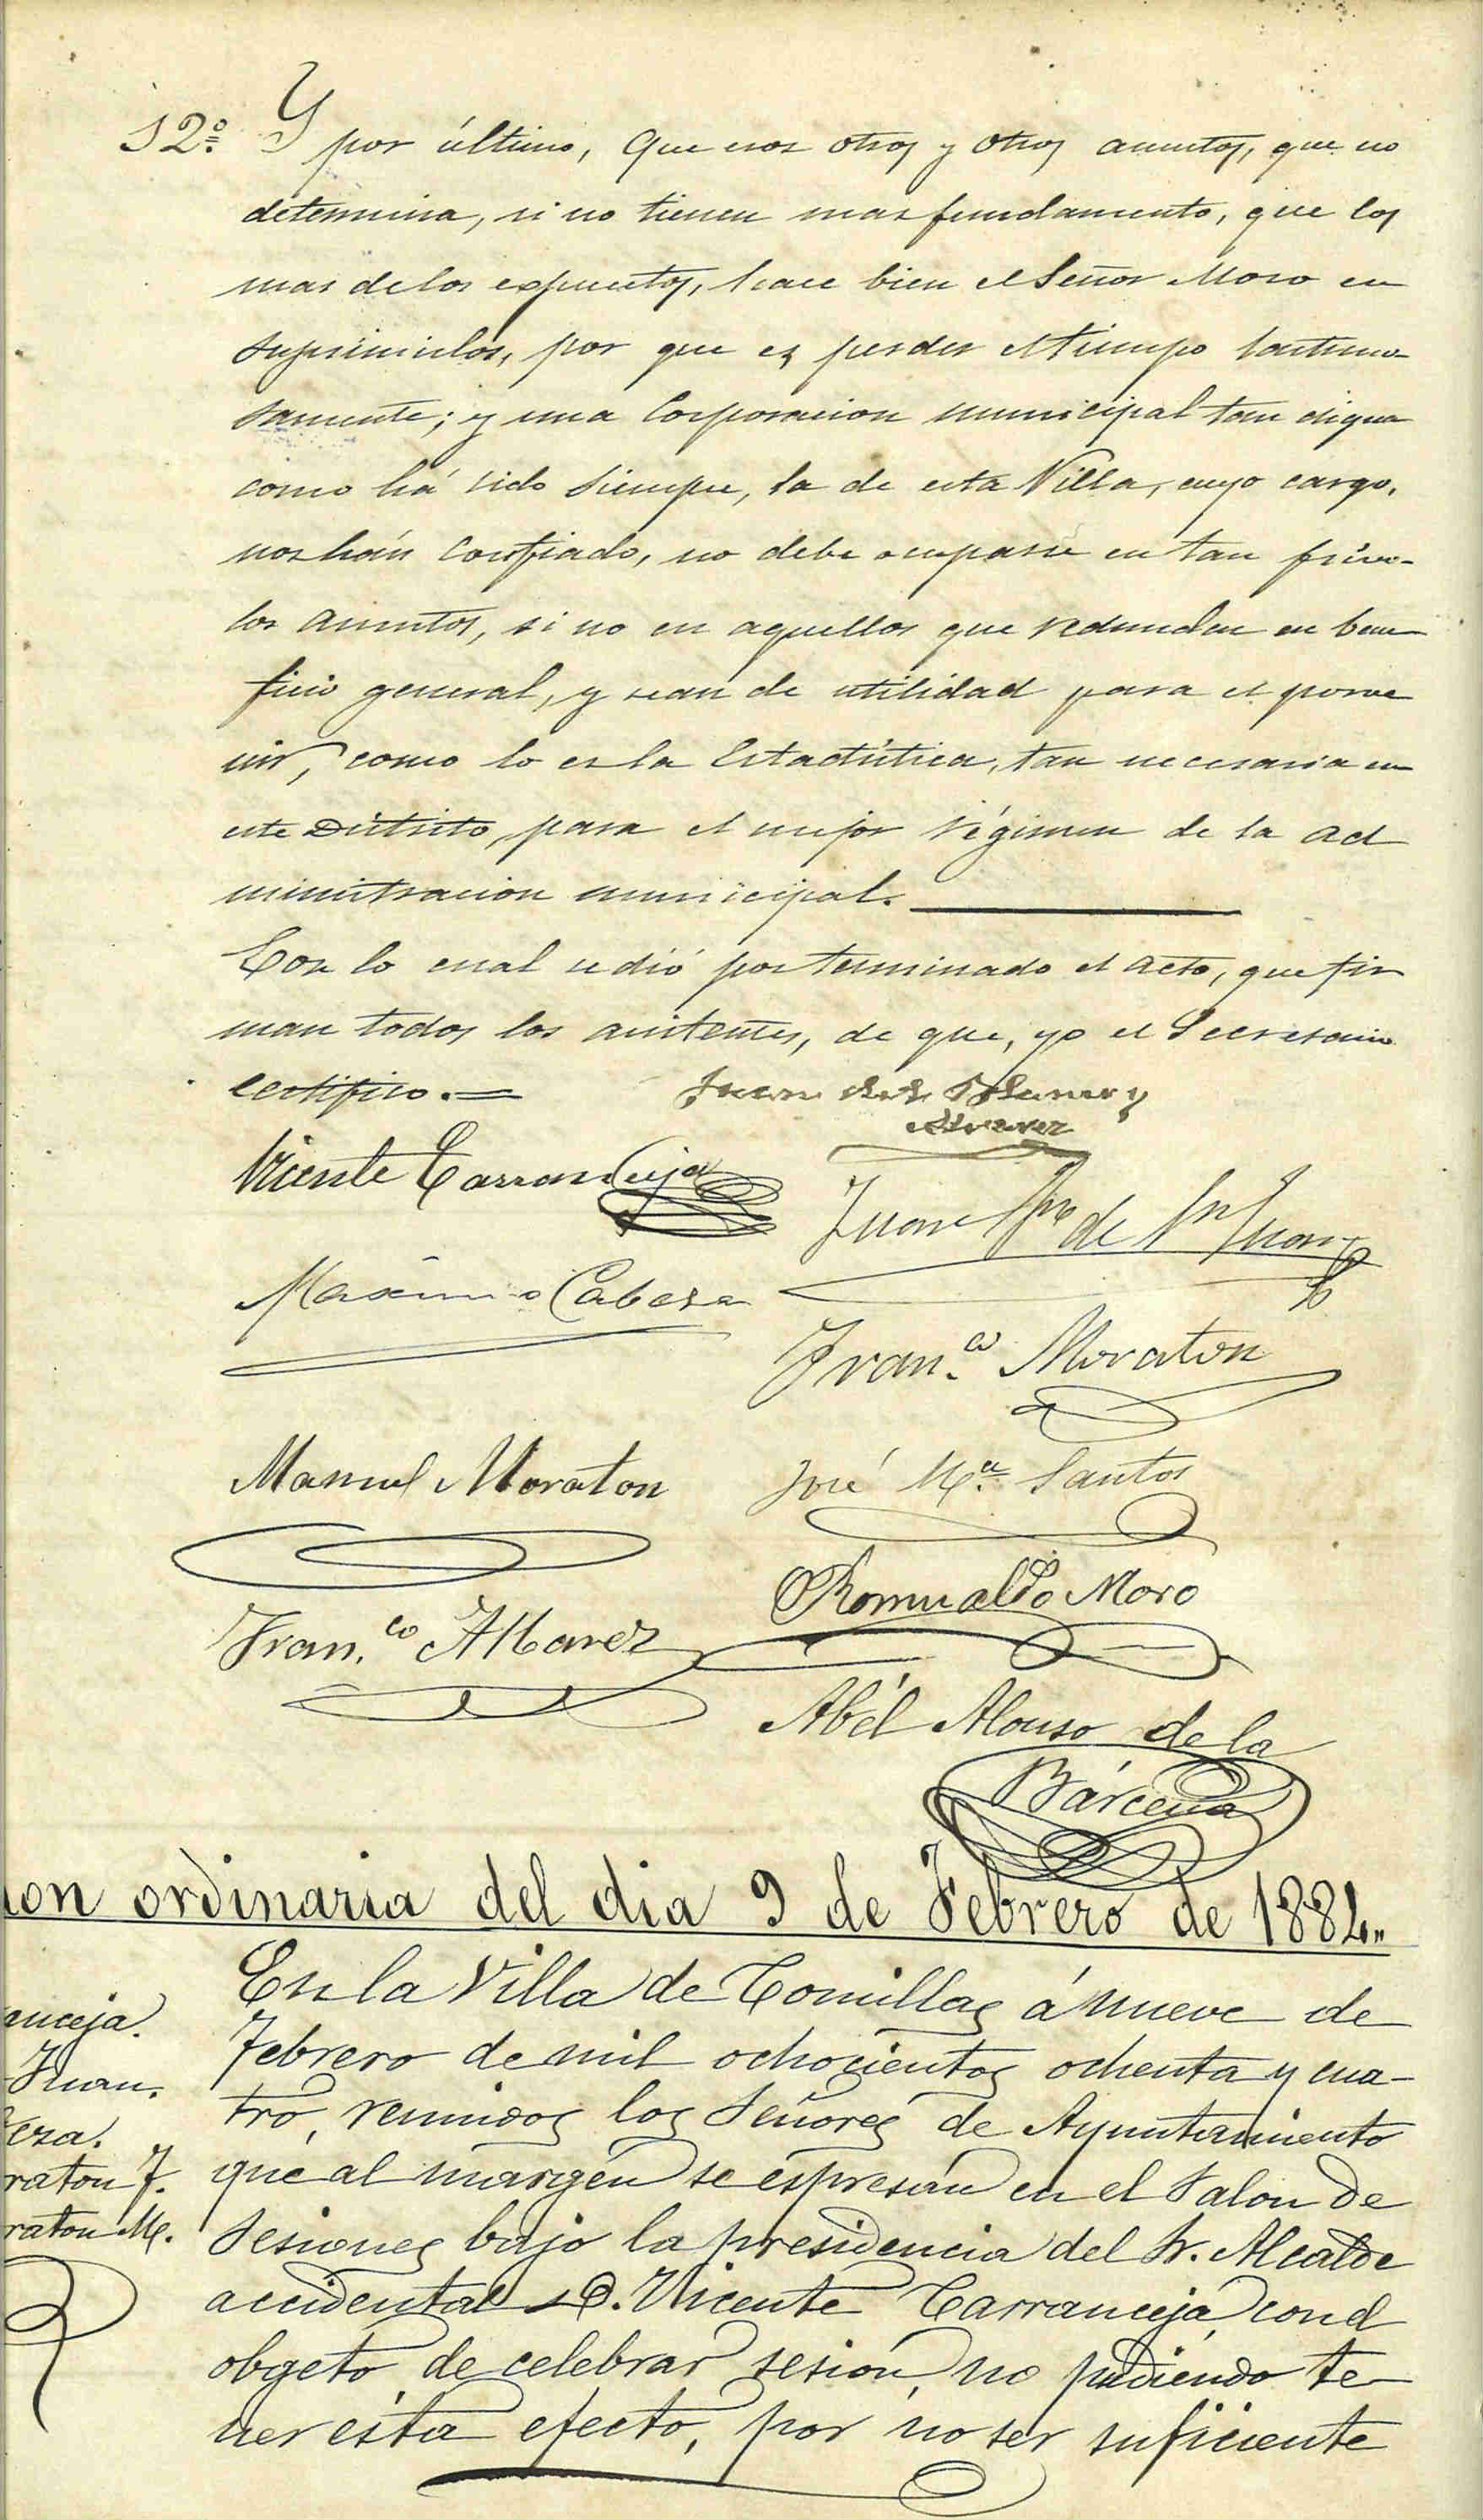 12º Y por último, Que esos otros y otros asuntos, que no
determina, si no tienen mas fundamento, que los
mas de los espuestos, hace bien el Señor Moro en
suprimirlos, por que es perder el tiempo lastimo-
samente; y una Corporacion municipal tan digna
como há sido siempre, la de esta Villa, cuyo cargo,
nos hán confiado, no debe ocuparse en tan frívo-
los asuntos, si no en aquellos que redunden en bene
ficio general, y sean de utilidad para el porve
nir, como lo es la Estadística, tan necesaria en
este Distrito, para el mejor régimen de la ad
ministracion municipal.
Con lo cual se dió por terminado el acto, que fir
man todos los asistentes, de que, yo el Secretario
certifico.=
Juan y
Alvarez
Vicente Carranceja
Juan de Sn Juan
Maximo Cabeza
Fran.co Moraton
Manuel Moraton
José Mª Santos
Romualdo Moro
Fran.co Alvarez
Abél Alonso de la
Bárcena
ion ordinaria del dia 9 de Febrero de 1884.
En la Villa de Comillas á nueve de
anceja.
Febrero de mil ochocientos ochenta y cua-
Juan.
tro, reunidos los Señores de Ayuntamiento
eza.
que al margen se espresan en el Salon de
raton F.
Sesiones bajo la presidencia del Sr. Alcalde
raton M.
accidental D. Vicente Carranceja, con el
obgeto de celebrar sesion, no pudiendo te-
ner ésta efecto, por no ser suficiente